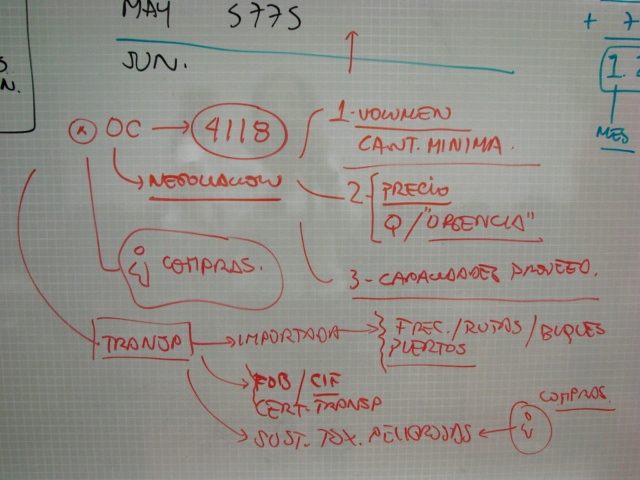 MAY 5775
JUN.
+ 7
1.2
MES
S
N.
* OC → 4118
NEGOCIACION
1-VOLUMEN
CANT. MINIMA.
2- PRECIO
Q/"URGENCIA"
3- CAPACIDADES PROVEED.
COMPRAS.
TRANSP → IMPORTADA → FREC./RUTAS/BUQUES
PUERTOS
FOB/CIF
CERT. TRANSP
SUST. TOX. PELIGROSAS ←
COMPRAS